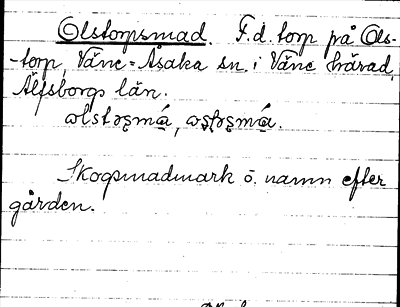 Olstorpsmad. F.d. torp på Ols-
-torp, Väne-Åsaka sn. i Väne härad,
Älfsborgs län.
Skogsmadmark o. namn efter
gården.